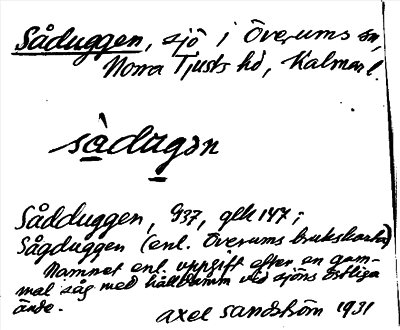 Såduggen, sjö i Överums sn,
Norra Tjusts hd, Kalmar l.
sàdugən
Sådduggen, 937, gek 147;
Sågduggen (enl. Överums brukskarta)
Namnet enl. uppgift efter en gam-
mal såg med hålldamm vid sjöns östliga
ände.
Axel Sandström 1931